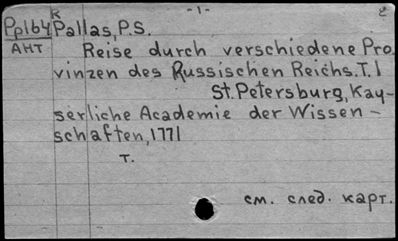 -1- 2
R
Pp164 Pallas, P.S.
АНТ Reise durch verschiedene Pro
vinzen des Russischen Reichs. T. 1
St. Petersburg, Kay-
serliche Academie der Wissen-
schaften, 1771
т.
см. след. карт.